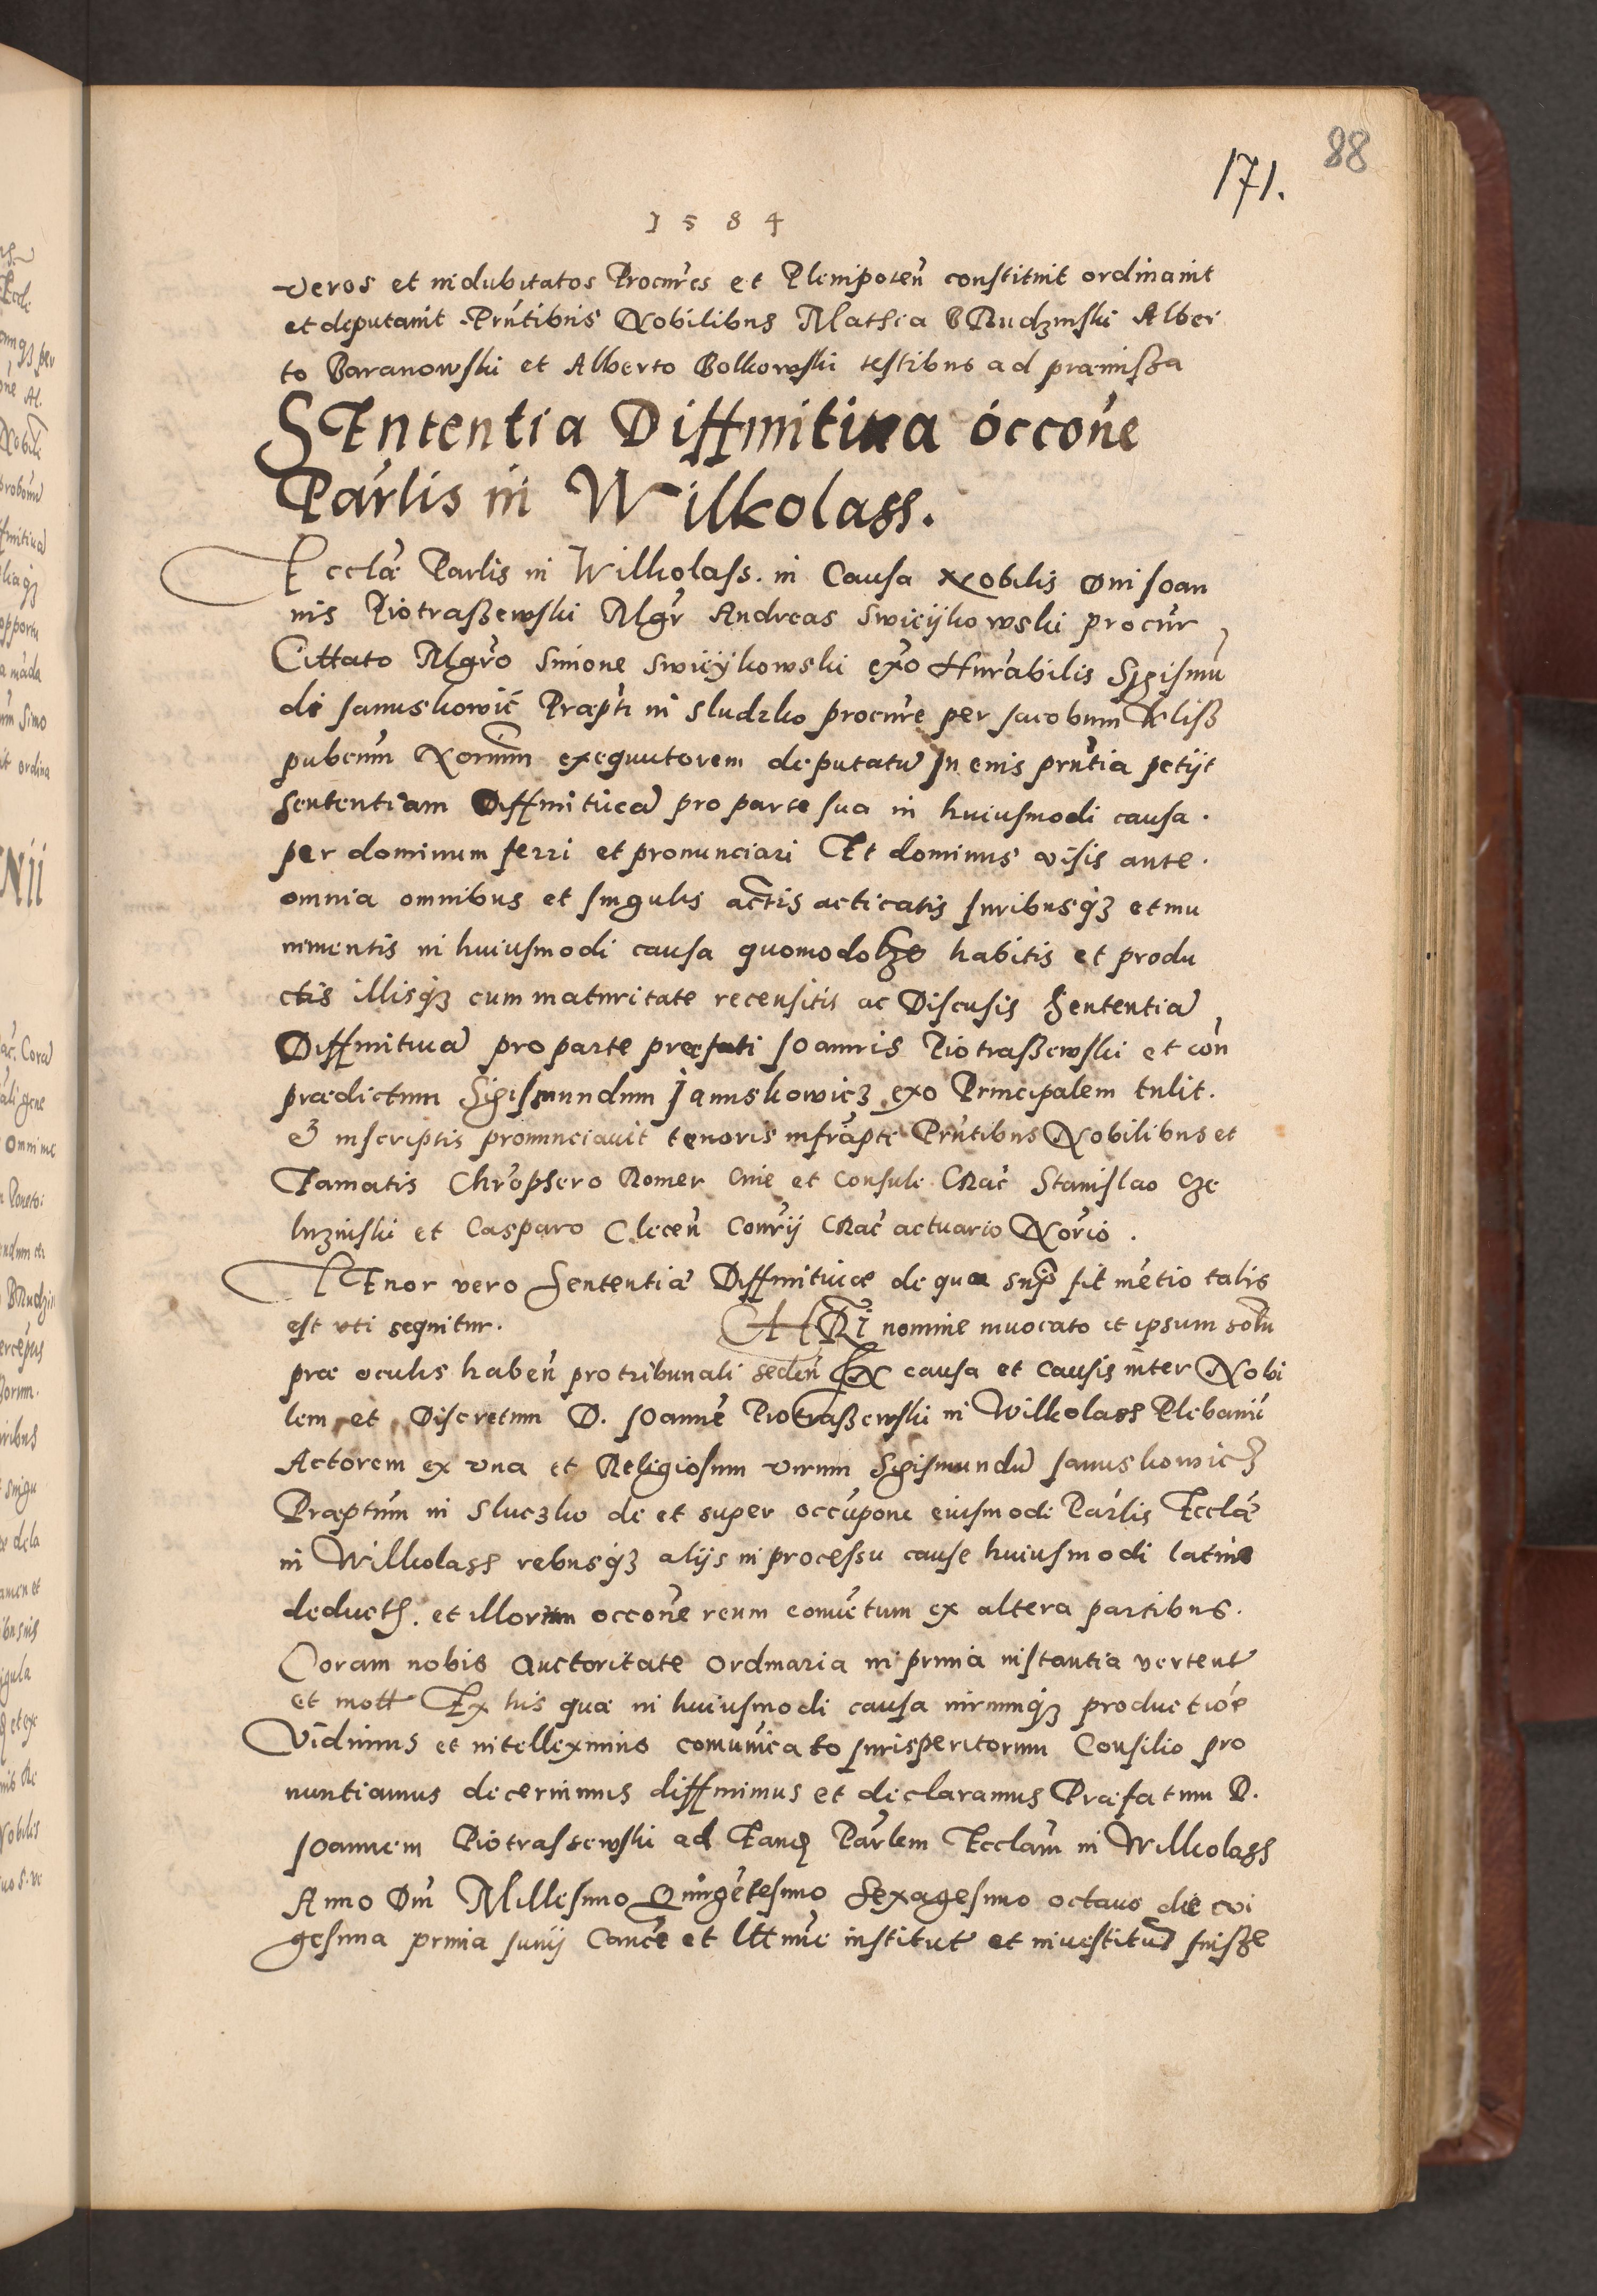 88
171.
1584
veros et indubitatos Procures et Plenipoten constituit ordinauit
et deputauit Prntibus Nobilibus Mathia Brudzinski Alber
to Baranowski et Alberto Bolkowski testibus ad præmissa
SEntentia Diffinitiua occone
Parlis in Wilkolass.
Ecclæ Parlis in Wilkolass. in Causa Nobilis Dni Joan
nis Piotraßewski Mgr Andreas Swiċijkowski procur
Cittato Mgro Simone Swiċijkowski exo Hnrabilis Sigismu
di Januskowic Præpti in Sludzko procure per Jacobum Kliß
pubcum Norium exequutorem deputatu In euis prntia petijt
sententiam Diffinitiua pro parte sua in huiusmodi causa.
per dominum ferri et pronunciari Et dominus visis ante.
omnia omnibus et singulis actis acticatis Juribusqz et mu
nimentis in huiusmodi causa quomodolze habitis et produ
ctis illisqz cum maturitate recensitis ac Discusis Sententia
Diffinitiua pro parte præfati Joannis Piotraßewski et con
prædictum Sigismundum Januskowicz exo Principalem tulit.
& inscriptis pronunciauit tenoris infrapti Prntibus Nobilibus et
Famatis Chrophsero Romer Ciue et Consule Crac Stanislao Ze
luzinski et Casparo Clecen Conrij Crac actuario Norio.
TEnor vero Sententiæ Diffinitiuæ de qua sup fit metio talis
est vti sequitur. CHRI nomine inuocato et ipsum solu
præ oculis haben pro tribunali seden In causa et causis inter Nobi
lem et Discretum D. Joanne Piotraßewski in Wilkolass Plebanu
Actorem ex vna et Religiosum virum Sigismundu Januskowicz
Præptum in Sluczko de et super occupone eiusmodi Parlis Ecclæ
in Wilkolass rebusqz alijs in processu cause huiusmodi latius
deducth. et illorum occone reum conuetum ex altera partibus.
Coram nobis Auctoritate Ordinaria in prima instantia vertent
et mott Ex his quæ in huiusmodi causa iuriumqz productioe
Vidimus et intelleximus comunicato Jurisperitorum Consilio pro
nuntiamus decernimus diffinimus et declaramus Præfatum D.
Joannem Piotrassewski ad Eand Parlem Ecclam in Wilkolass
Anno Dni Millesimo Quingetesimo Sexagesimo octauo die vi
gesima prima Junij Cance et lttme institut et inuestitu fuisse